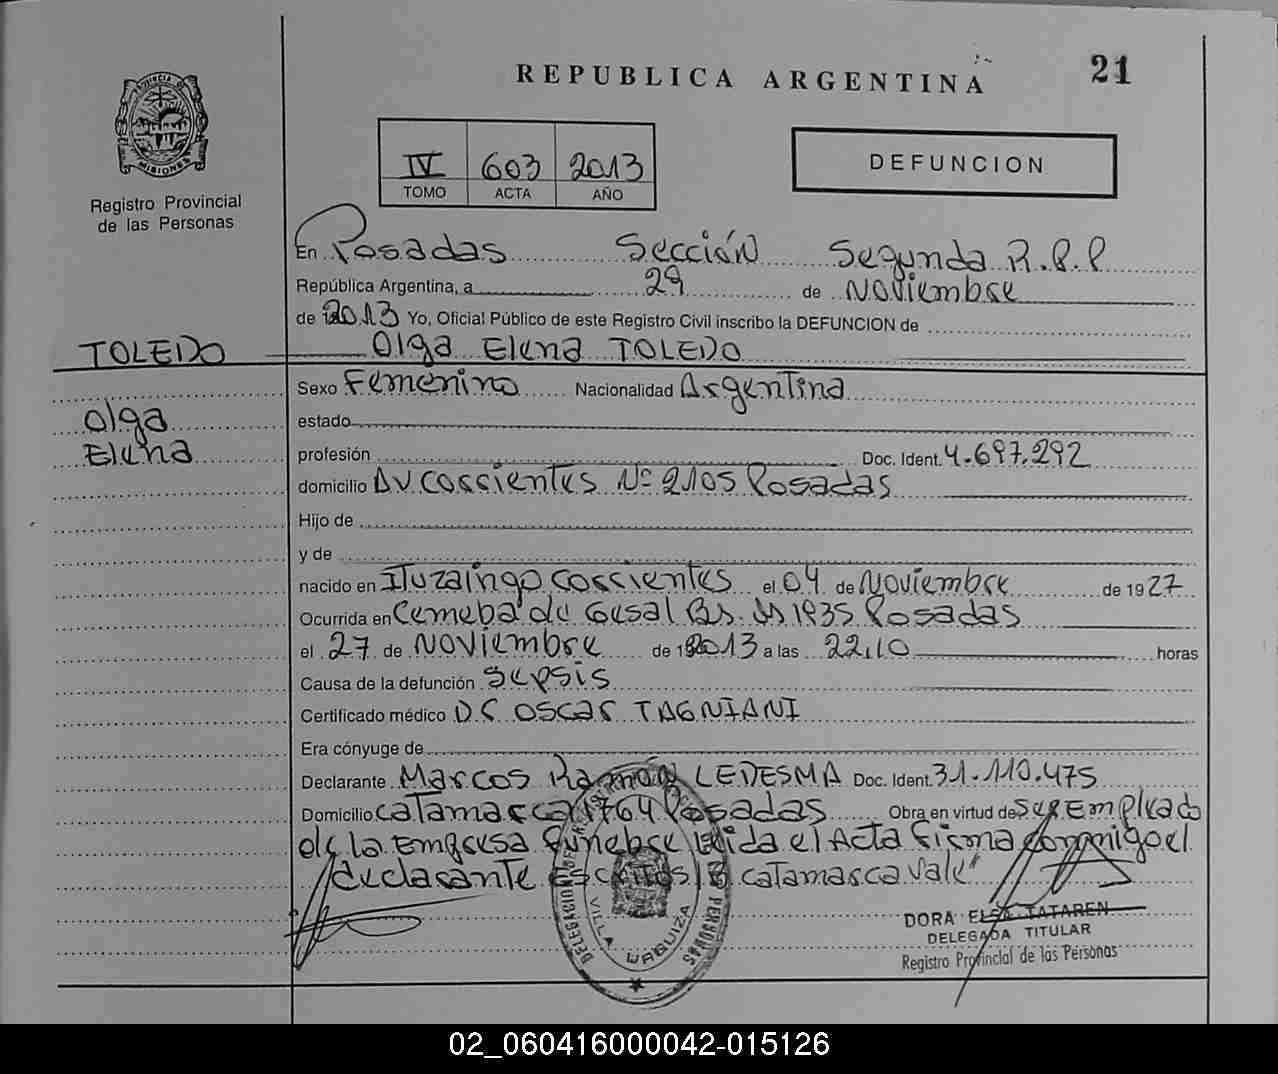 REPUBLICA ARGENTINA
21
PROVINCIA DE MISIONES
Registro Provincial
de las Personas
IV 603 2013
TOMO ACTA AÑO
DEFUNCION
En Posadas Sección Segunda R.P.P
República Argentina, a 29 de Noviembre
de 2013 Yo, Oficial Público de este Registro Civil inscribo la DEFUNCION de
TOLEDO Olga Elena TOLEDO
Sexo Femenino Nacionalidad Argentina
Olga
estado
Elena
profesión Doc. Ident. 4.697.292
domicilio AV Corrientes Nº 2105 Posadas
Hijo de
y de
nacido en Ituzaingo Corrientes el 04 de Noviembre de 1927
Ocurrida en Cemeba de Gesal Bs. As 1935 Posadas
el 27 de Noviembre de 2013 a las 22,10 horas
Causa de la defunción Sepsis
Certificado médico Dr Oscar TAGNIANI
Era cónyuge de
Declarante Marcos Ramón LEDESMA Doc. Ident. 31.110.475
Domicilio Catamarca 1764 Posadas Obra en virtud de Ser Empleado
de la Empresa Funebre Leida el Acta firma conmigo el
declarante Escritos/B catamarca Vale"
DELEGACION DEL REGISTRO PERSONAS
VILLA URQUIZA
DORA ELSA TATAREN
DELEGADA TITULAR
Registro Provincial de las Personas
02_060416000042-015126